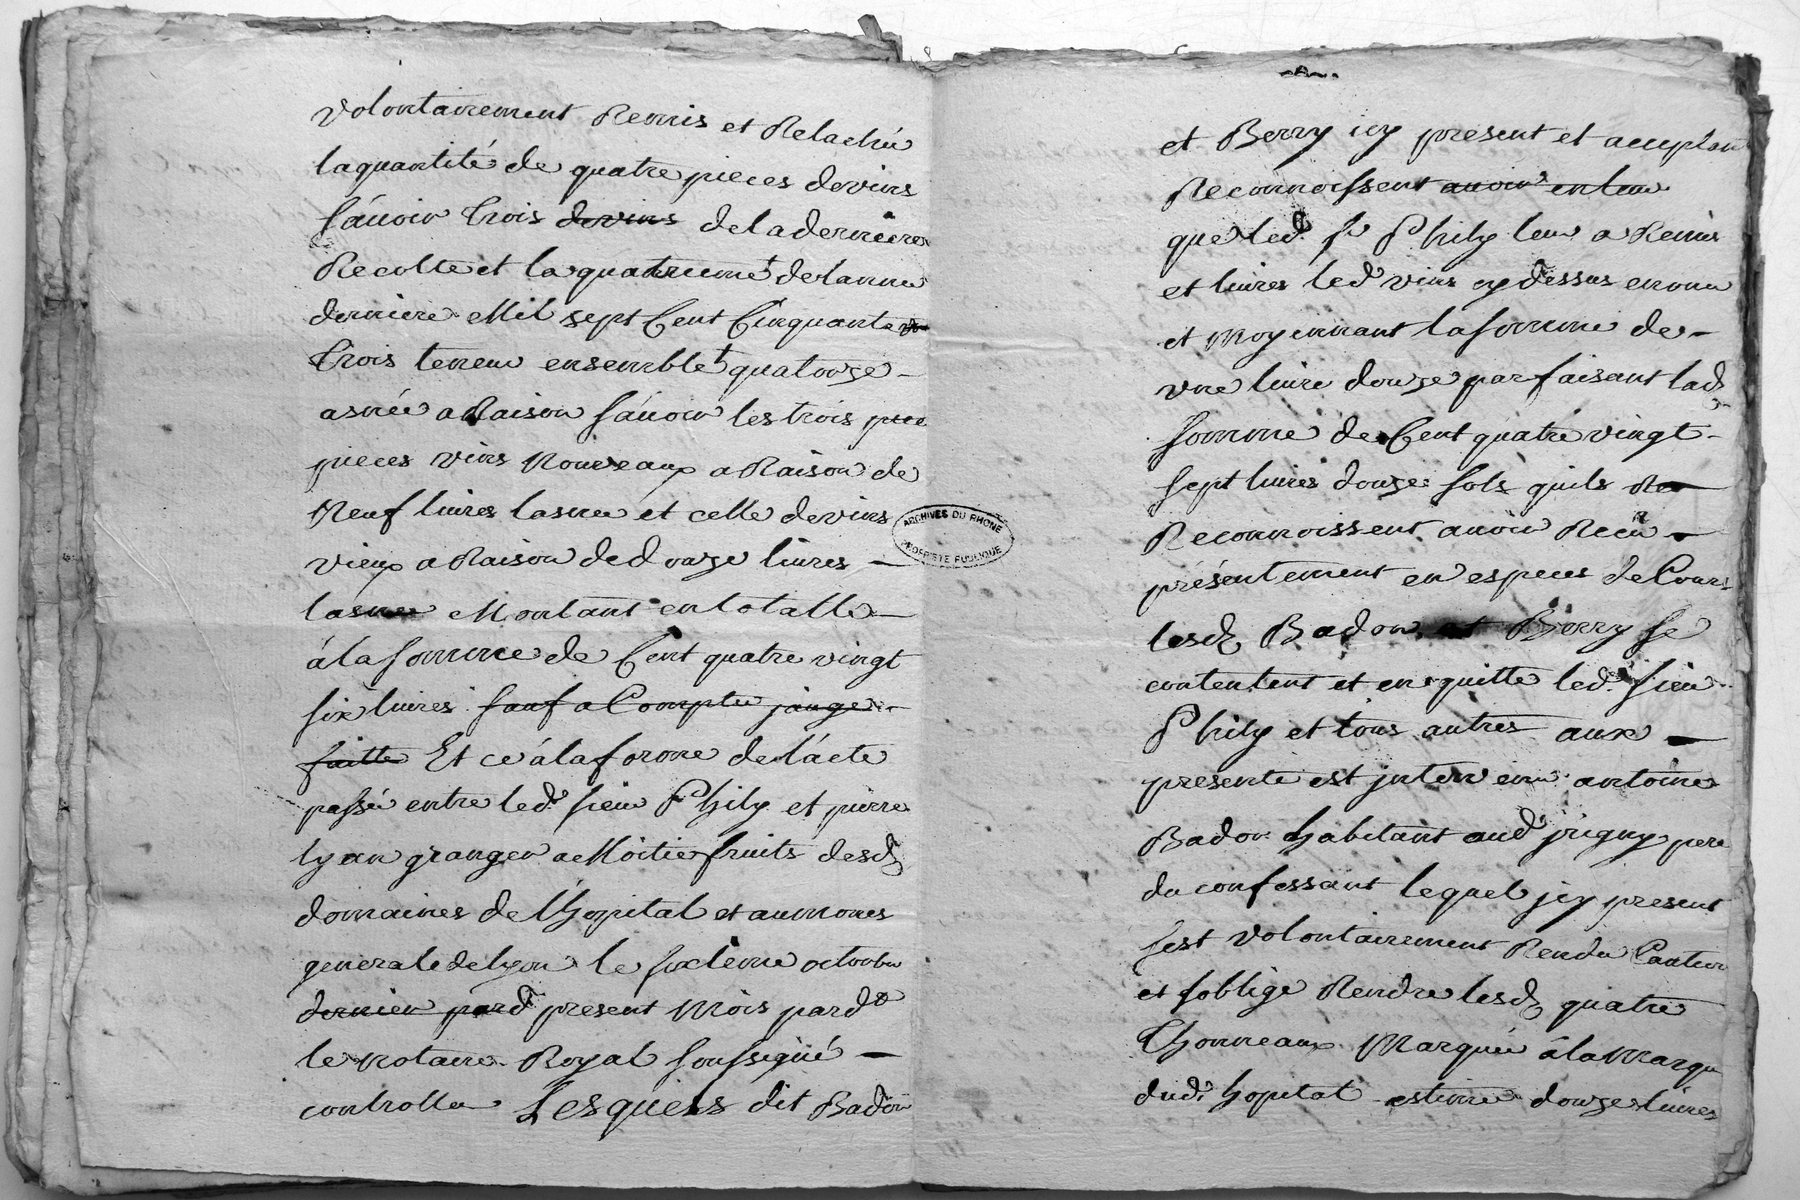 volontairement Remis et Relaché
la quantité de quatre pieces de vins
sçavoir trois de vins de la derniere
Recolte et la quatrieme de lannee
derniere Mil sept Cent Cinquante
trois teneur ensemble quatorze
asnée a Raison sçavoir les trois
pieces vins Nouveaux a Raison de
Neuf livres lasnee et celle de vins
vieux a Raison de douze livres
lasnee Montant en totalle
á la somme de Cent quatre vingt
six livres sauf a Compter jauge
faitte Et ce á la forme de lácte
passé entre led. sieur Phily et pierre
lyan granger a Moitie fruits desd.
domaines de lhopital et aumones
generale de lyon le sixieme octobre
dernier par d. present Mois pard.
le notaire Royal soussigné
controller Lesquels dit Badon
ARCHIVES DU RHONE
PROPRIETE PUBLIQUE
et Berry icy present et acceptan
Reconnoissent avoir entenu
que led. sr Phily leur a Remis
et livres led. vins cy dessus enonce
et Moyennant la somme de
une livre douze parfaisant lad.
somme de Cent quatre vingt
sept livres douze sols quils Re
Reconnoissent avoir Recu
présentement en especes de Cours
lesd. Badon et Berry se
contentent et en quitte led. sieur
Phily et tous autres aux
presente est jntervenu antoine
Badon habitant aud. jrigny pere
du confessant lequel jcy present
sest volontairement Rendu Caution
et soblige Rendre lesd. quatre
Thonneaux Marqué á la Marque
dud. hopital estimé douze livres